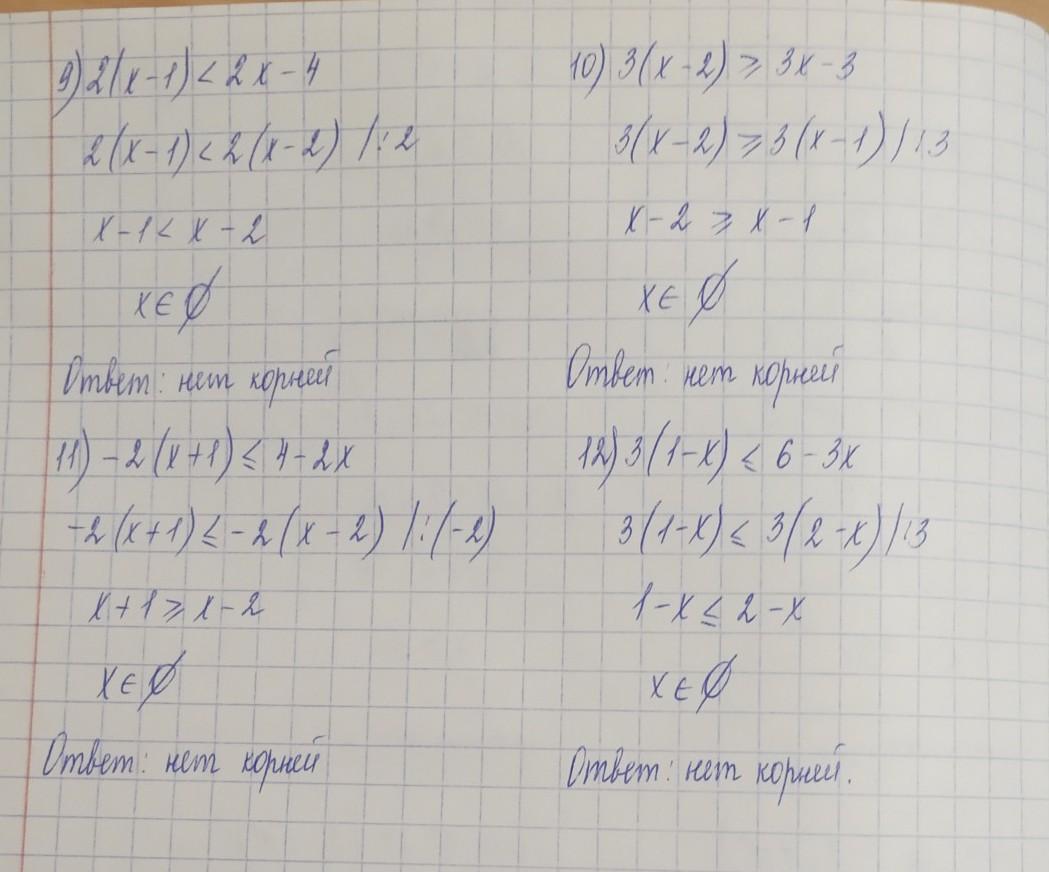 9) 2(x-1) < 2x-4
2(x-1) < 2(x-2) |:2
x-1 < x-2
x ∈ ∅
Ответ: нет корней
10) 3(x-2) ⩾ 3x-3
3(x-2) ⩾ 3(x-1) |:3
x-2 ⩾ x-1
x ∈ ∅
Ответ: нет корней
11) -2(x+1) ≤ 4-2x
-2(x+1) ≤ -2(x-2) |:(-2)
x+1 ⩾ x-2
x ∈ ∅
Ответ: нет корней
12) 3(1-x) ≤ 6-3x
3(1-x) ≤ 3(2-x) |:3
1-x ≤ 2-x
x ∈ ∅
Ответ: нет корней.